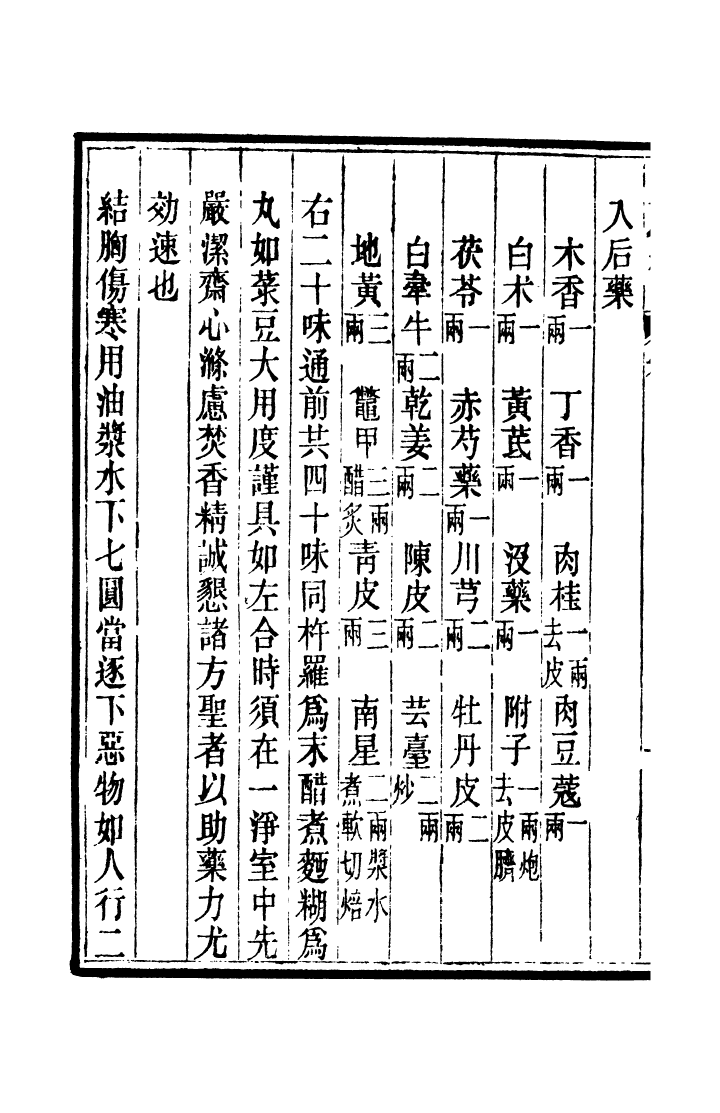 入后藥
木香一兩 丁香一兩 肉桂一兩去皮 肉豆蔻一兩
白朮一兩 黃芪一兩 沒藥一兩 附子一兩炮去皮臍
茯苓一兩 赤芍藥一兩 川芎二兩 牡丹皮二兩
白牽牛二兩 乾姜二兩 陳皮二兩 芸臺二兩炒
地黃三兩 鼈甲三兩醋炙 青皮三兩 南星二兩漿水煮軟切焙
右二十味通前共四十味同杵羅爲末醋煮麵糊爲
丸如菉豆大用度謹具如左合時須在一淨室中先
嚴潔齋心滌慮焚香精誠懇諸方聖者以助藥力尤
効速也
結胸傷寒用油漿水下七圓當逐下惡物如人行二